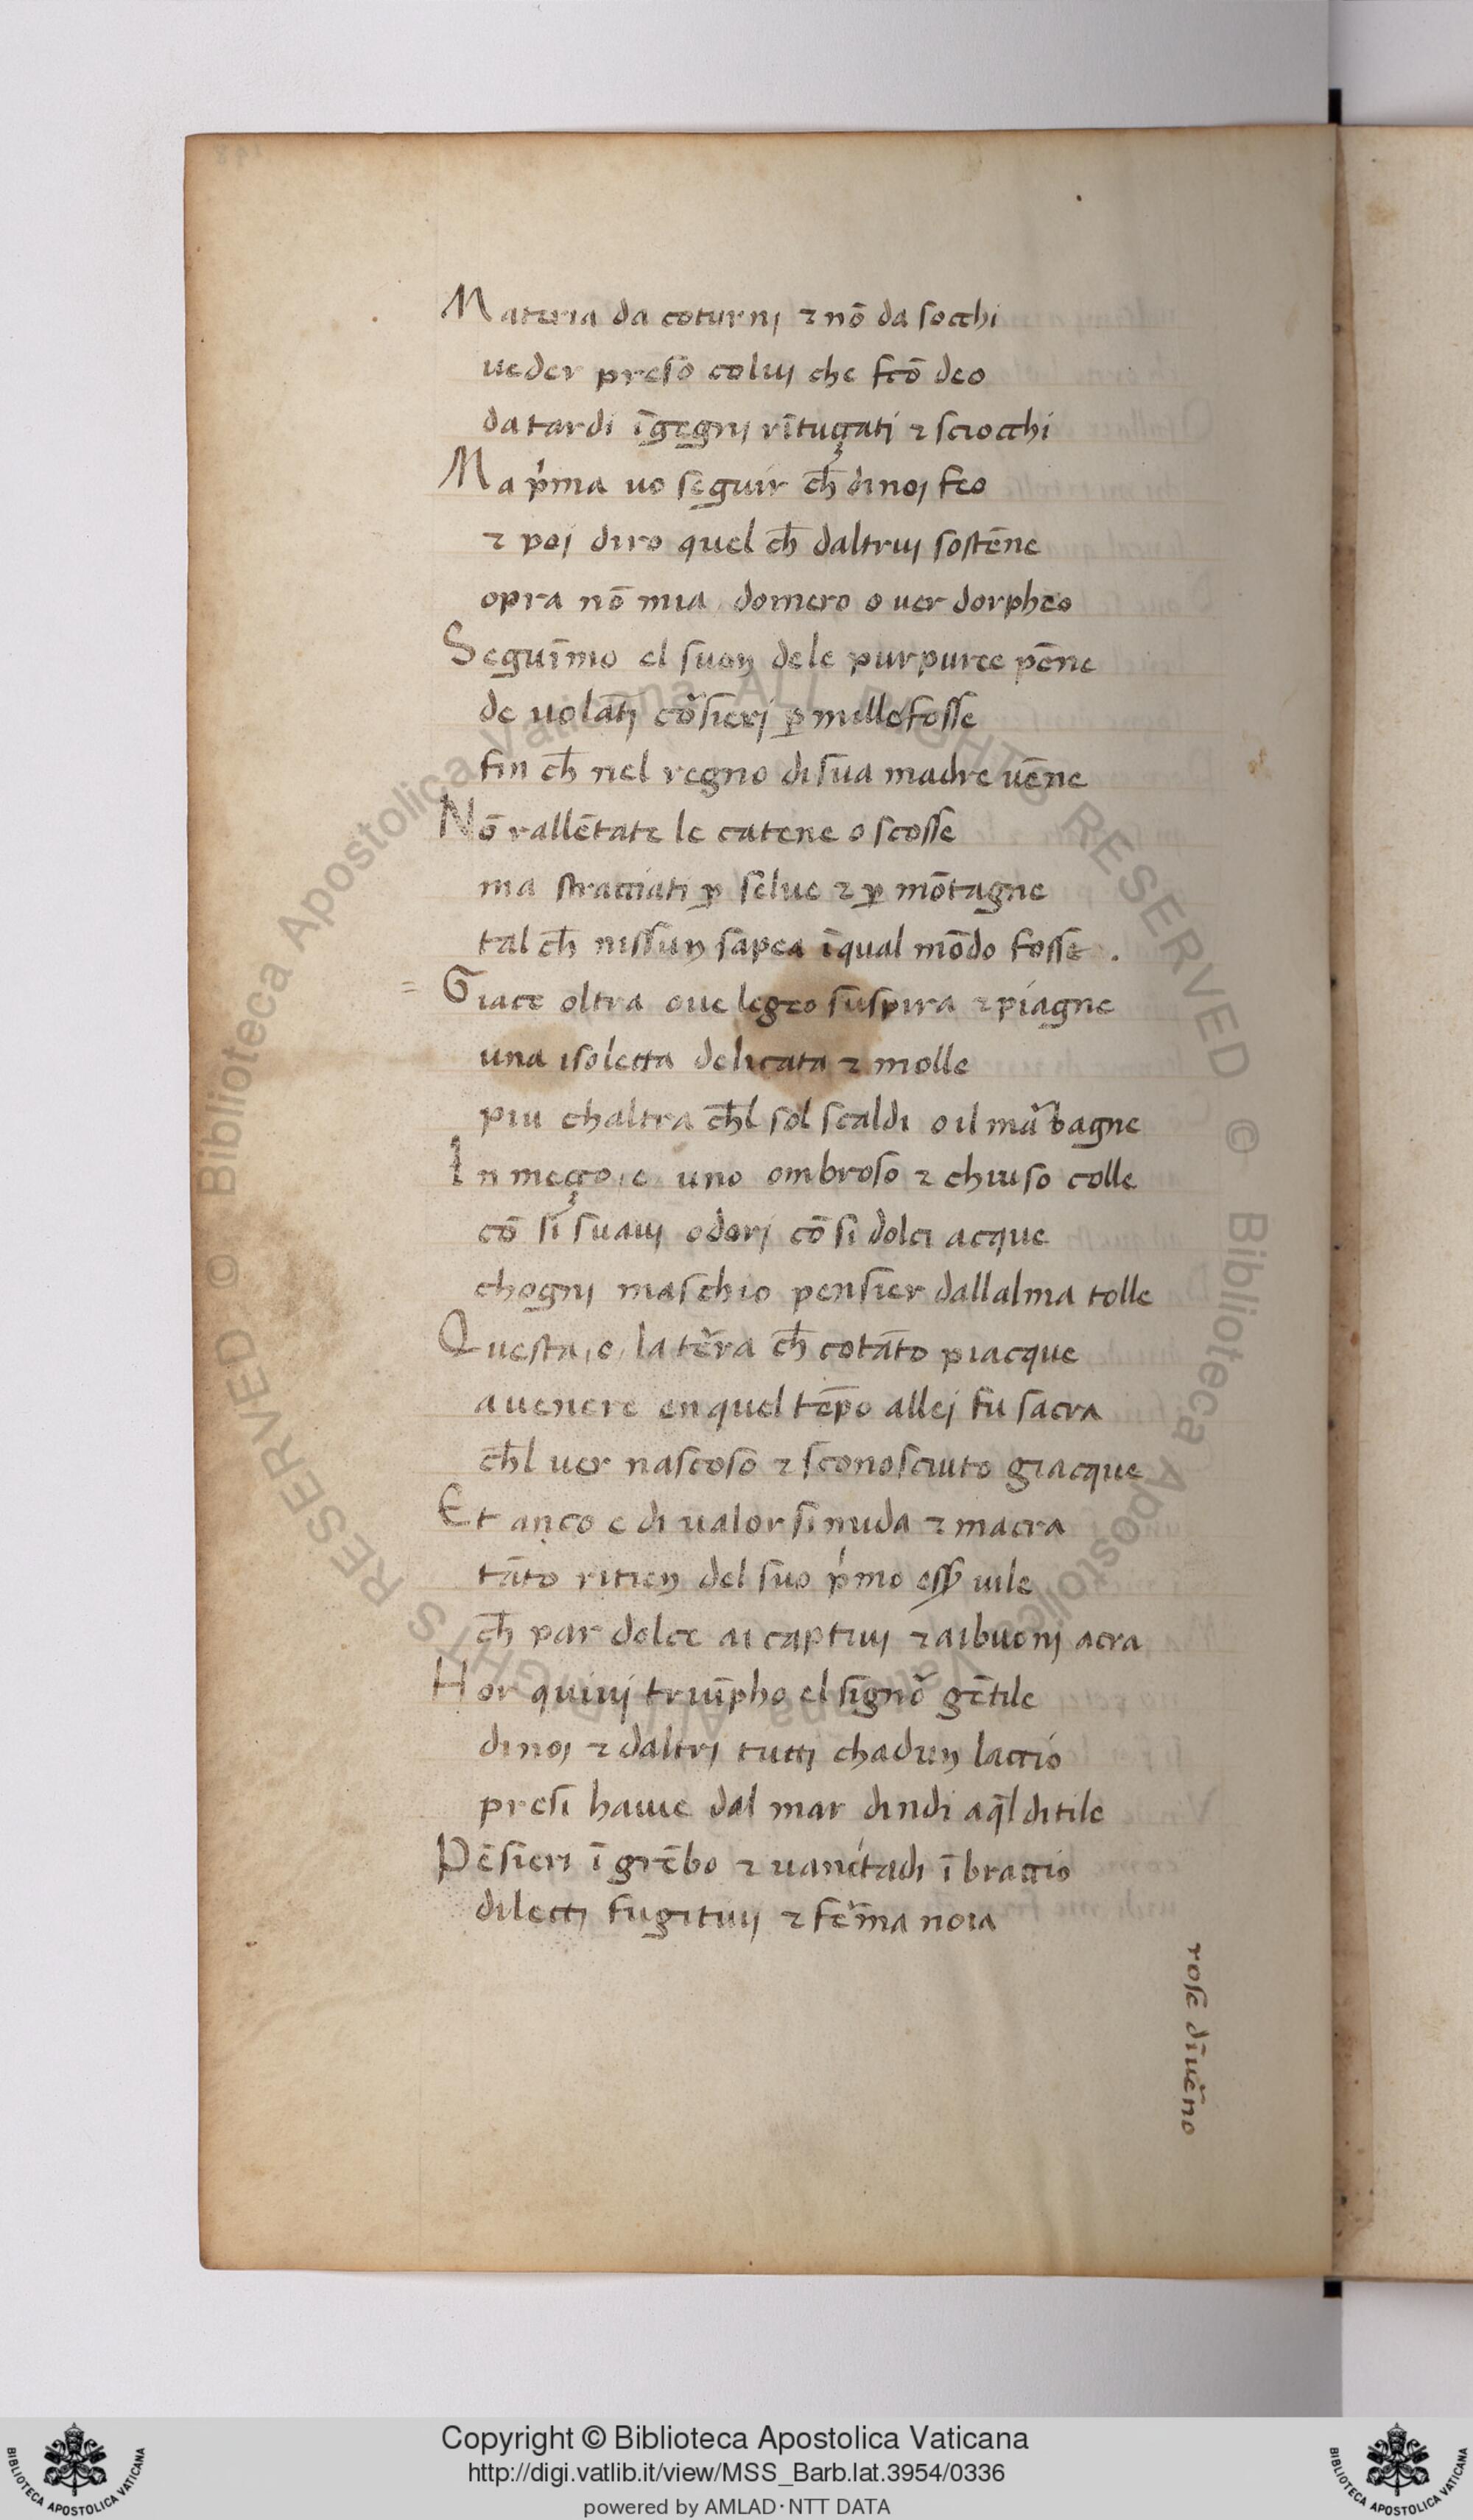 Materia da coturnj ⁊ nō da socchi
ueder preso coluj che fcō deo
da tardi īgegnj rītuzati ⁊ sciocchi
Ma p'ma uo seguir ch̄ dinoj feo
⁊ poj diro quel ch̄ daltruj sostēne
opra nō mia domero o uer dorpheo
Seguim̄o el suon dele purpuree pēne
de uolātj cōsierj p̱ mille fosse
fin ch̄ nel regno di sua madre uēne
Nō rallētate le catene o scosse
ma stracciati p̱ selue ⁊ p̱ mōtagne
tal ch̄ nissun sapea īqual mōdo fosse .
= Giace oltra oue legeo suspira ⁊ piagne
una isoletta delicata ⁊ molle
piu chaltra ch̄l sol scaldi o il mar̄ bagne
In mezo e uno ombroso ⁊ chiuso colle
cō si suauj odorj cō si dolci acque
chognj maschio pensier dallalma tolle
Questa e la ter̄a ch̄ cotāto piacque
a uenere en quel tēpo allej fu sacra
ch̄l uer nascoso ⁊ sconosciuto giacque
Et anco e di ualor si nuda ⁊ macra
tāto ritien del suo p'mo ess̱ uile
ch̄ par dolce ai captiuj ⁊ aibuonj acra
Hor quiuj triūpho el signor̄ gētile
dinoj ⁊ daltrj tuttj chadun laccio
presi hauue dal mar dindi a q̄l ditile
Pēsieri ī grēbo ⁊ uanitadi ī braccio
dilectj fugitiuj ⁊ fer̄ma noia
rose dīuer̄no
Copyright © Biblioteca Apostolica Vaticana
http://digi.vatlib.it/view/MSS_Barb.lat.3954/0336
powered by AMLAD·NTT DATA